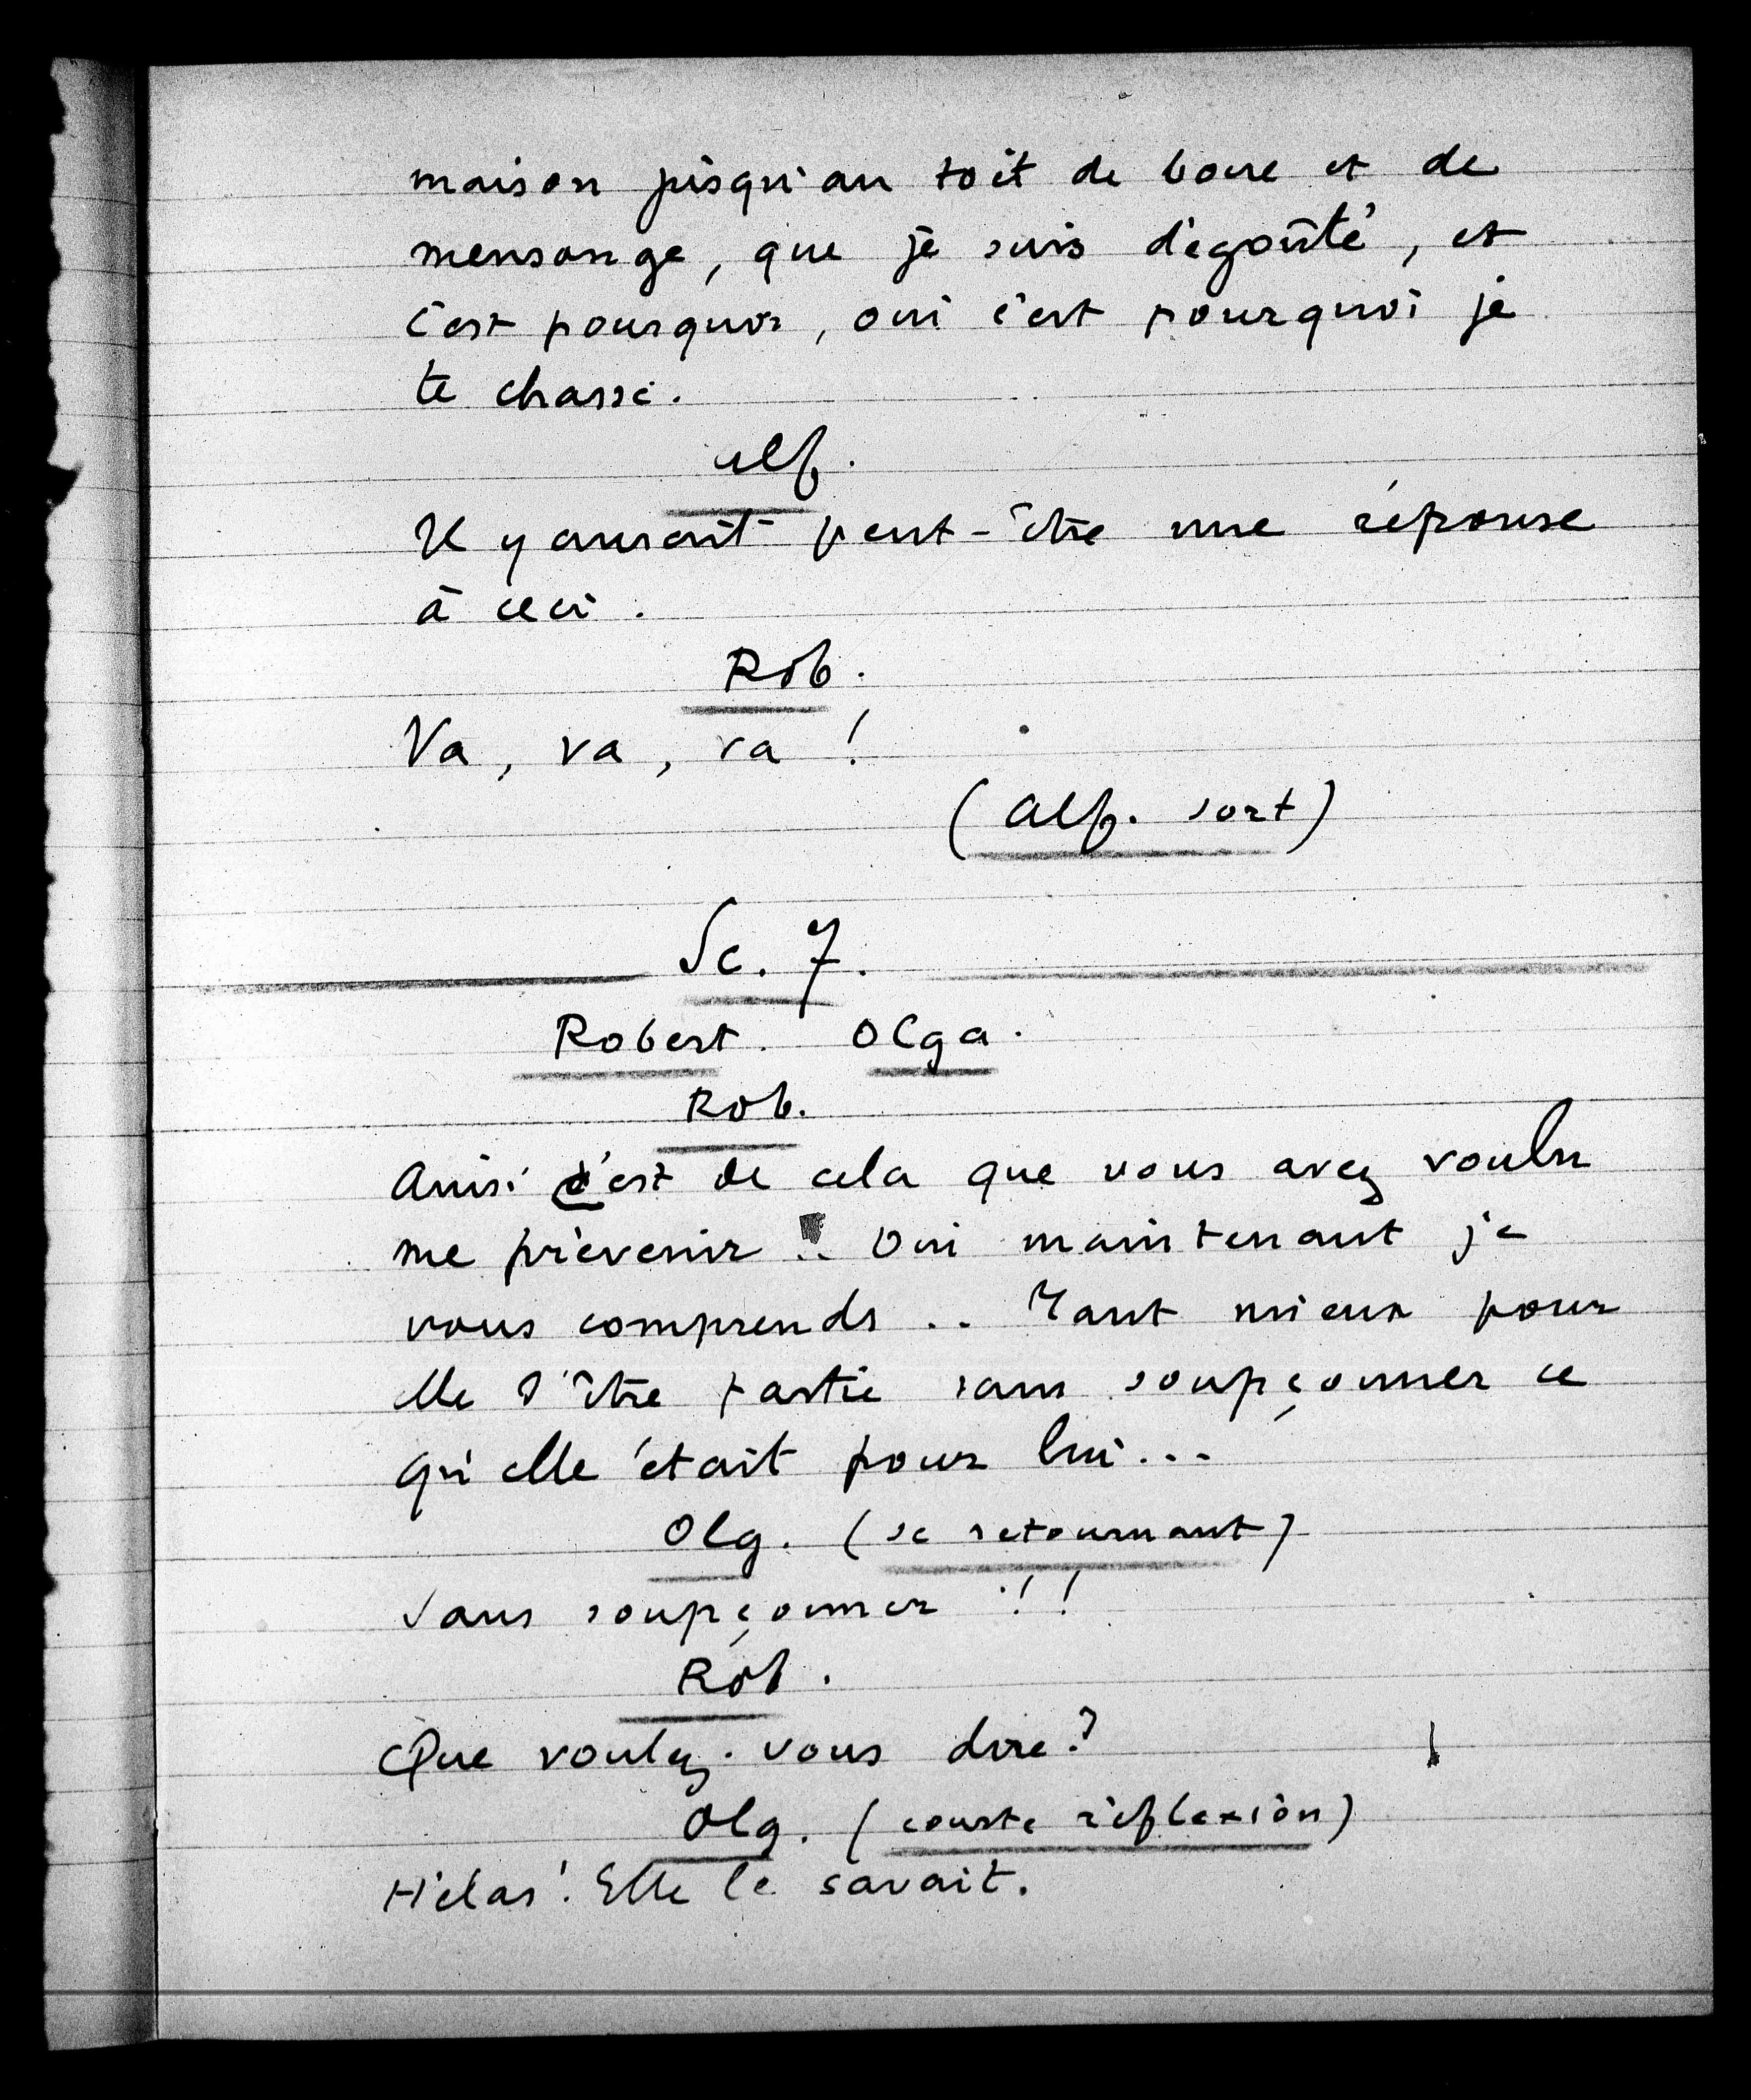 maison jusqu'au toit de boue et de
mensonge, que je suis dégoûté, et
c'est pourquoi, oui c'est pourquoi je
te chasse.
Alf.
Il y aurait peut-être une réponse
à ceci.
Rob.
Va, va, va !
(Alf. sort)
Sc. 7.
Robert. Olga.
Rob.
Ainsi c'est de cela que vous avez voulu
me prévenir !.. Oui maintenant je
vous comprends .. Tant mieux pour
elle d'être partie sans soupçonner ce
qu'elle était pour lui...
Olg. (se retournant)
Sans soupçonner !!
Rob.
Que voulez-vous dire?
Olg. (courte réflexion)
Hélas! Elle le savait.